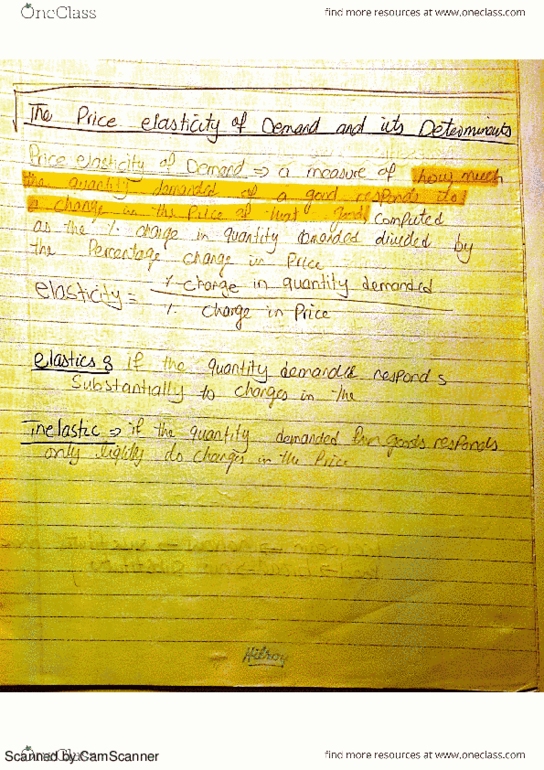 OneClass
find more resources at www.oneclass.com
The Price elasticity of Demand and its Determinants
Price elasticity of Demand ⇒ a measure of how much
the quantity demanded of a good responds to
a change in the Price of that good, Computed
as the % change in quantity demanded divided by
the Percentage change in Price
elasticity = % change in quantity demanded
% change in Price
elastic: if the quantity demanded responds
Substantially to changes in the
inelastic ⇒ if the quantity demanded goods responds
only changes in the Price
Hilroy
Scanned by CamScanner
OneClass
find more resources at www.oneclass.com